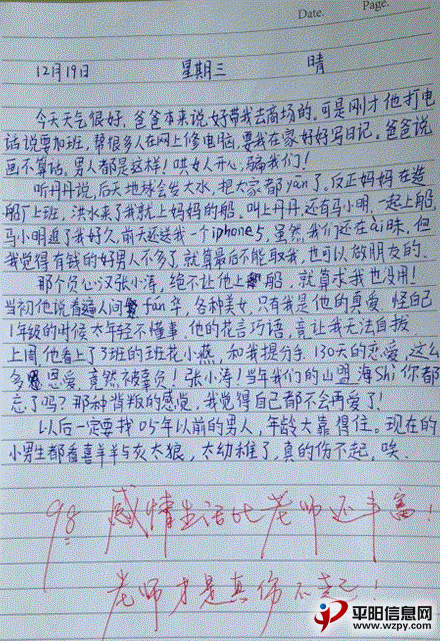 Date.
Page.
12月19日 星期三 晴
今天天气很好,爸爸本来说好带我去商场的,可是刚才他打电
话说要加班,帮很多人在网上修电脑,要我在家好好写日记。爸爸说
画不算话,男人都是这样!哄女人开心,骗我们!
听丹丹说,后天地球会发大水,把大家都yān了,反正妈妈在造
船厂上班,洪水来了我就上妈妈的船。叫上丹丹,还有马小明,一起上船,
马小明追了我好久,前天还送我一个iphone5,虽然我们还在ài昧,但
我觉得有钱的好男人不多了,就算最后不能取我,也可以做朋友的.
那个负心汉张小涛,绝不让他上船,就算求我也没用!
当初他说看遍人间fán华,各种美女,只有我是他的真爱.怪自己
1年级的时候太年轻不懂事.他的花言巧语,竟让我无法自拔
上周他看上了3班的班花小燕,和我提分手.130天的恋爱,这么
多恩爱,竟然被辜负!张小涛!当年我们的山盟海Shì你都
忘了吗?那种背叛的感觉,我觉得自己都不会再爱了!
以后一定要找05年以前的男人,年龄大靠得住。现在的
小男生都看喜羊羊与灰太狼,太幼稚了,真的伤不起,唉.
98 感情生活比老师还丰富!
老师才是真伤不起!
平阳信息网
www.wzpy.com